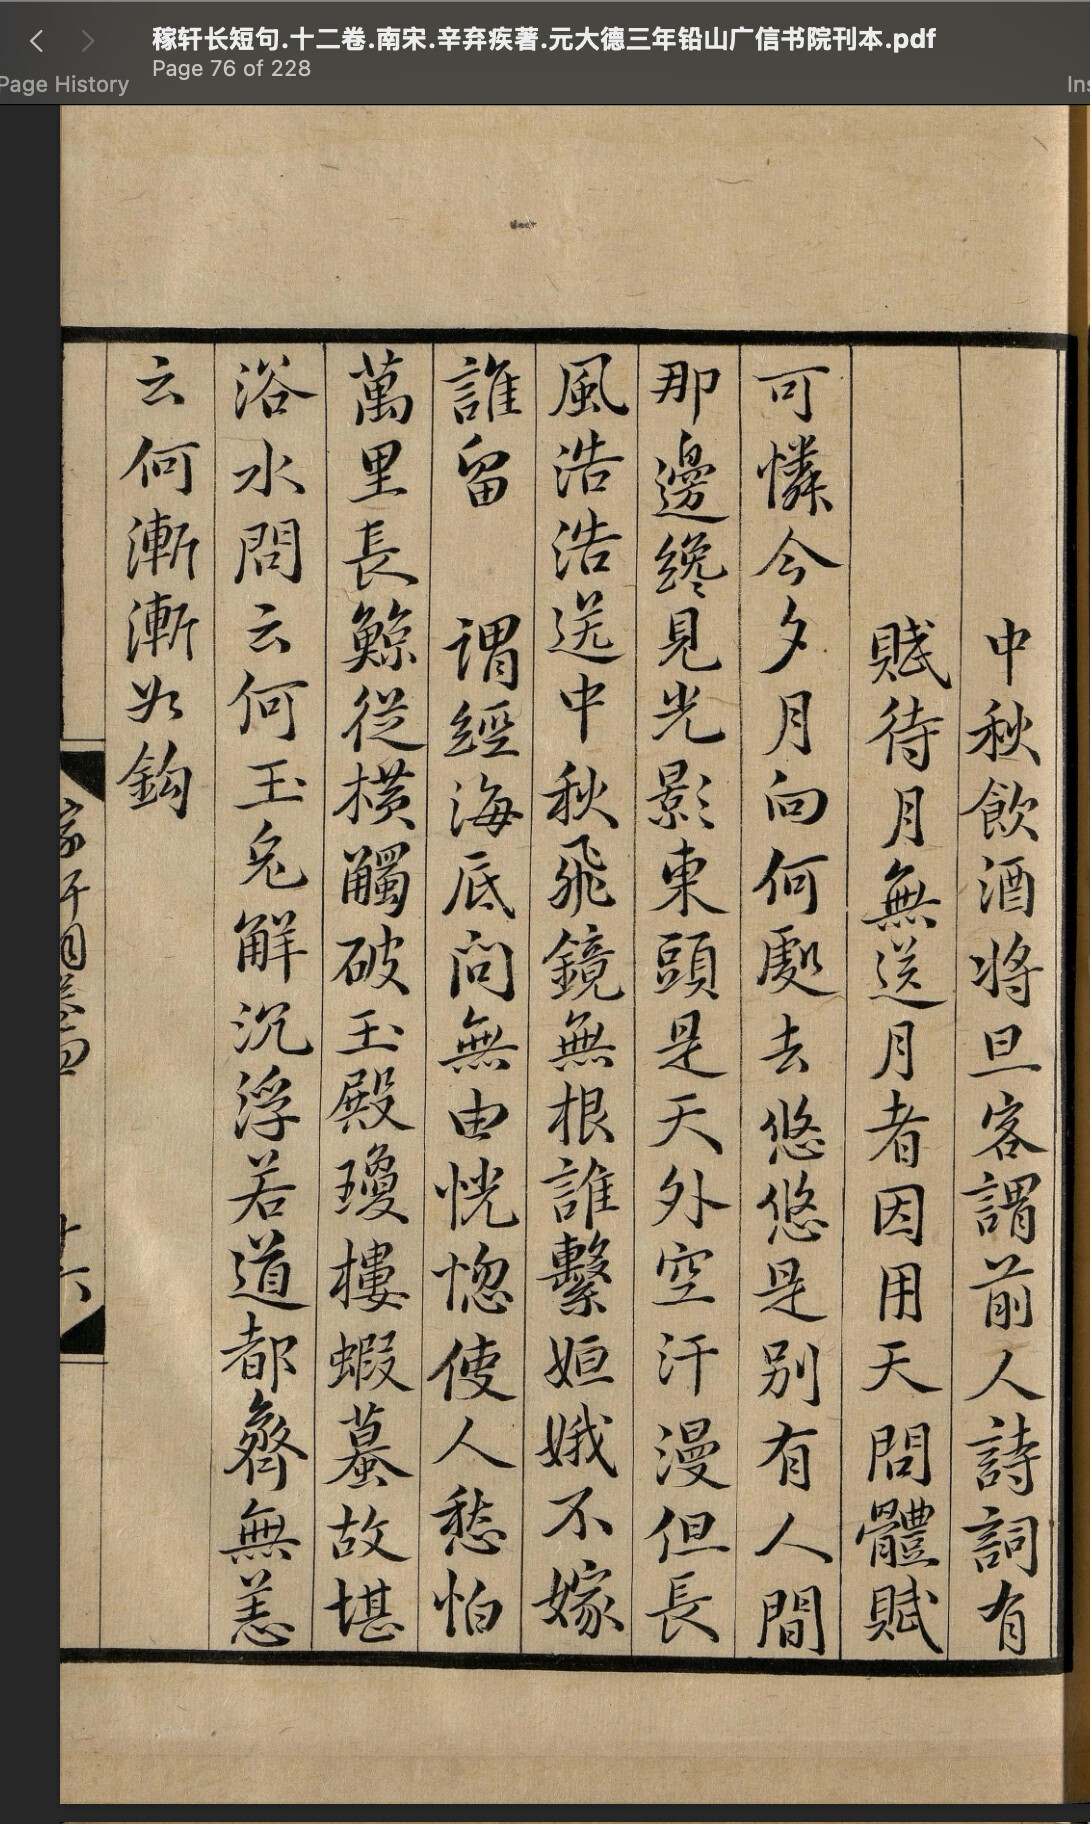 稼轩长短句.十二卷.南宋.辛弃疾著.元大德三年铅山广信书院刊本.pdf
Page 76 of 228
Page History
Ins
中秋飲酒将旦客謂前人詩詞有
賦待月無送月者因用天問體賦
可憐今夕月向何處去悠悠是別有人間
那邊纔見光影東頭是天外空汗漫但長
風浩浩送中秋飛鏡無根誰繫姮娥不嫁
誰留　謂經海底问無由恍惚使人愁怕
萬里長鯨從横觸破玉殿瓊樓蝦蟇故堪
浴水問云何玉兎解沉浮若道都齊無恙
云何漸漸如鈎